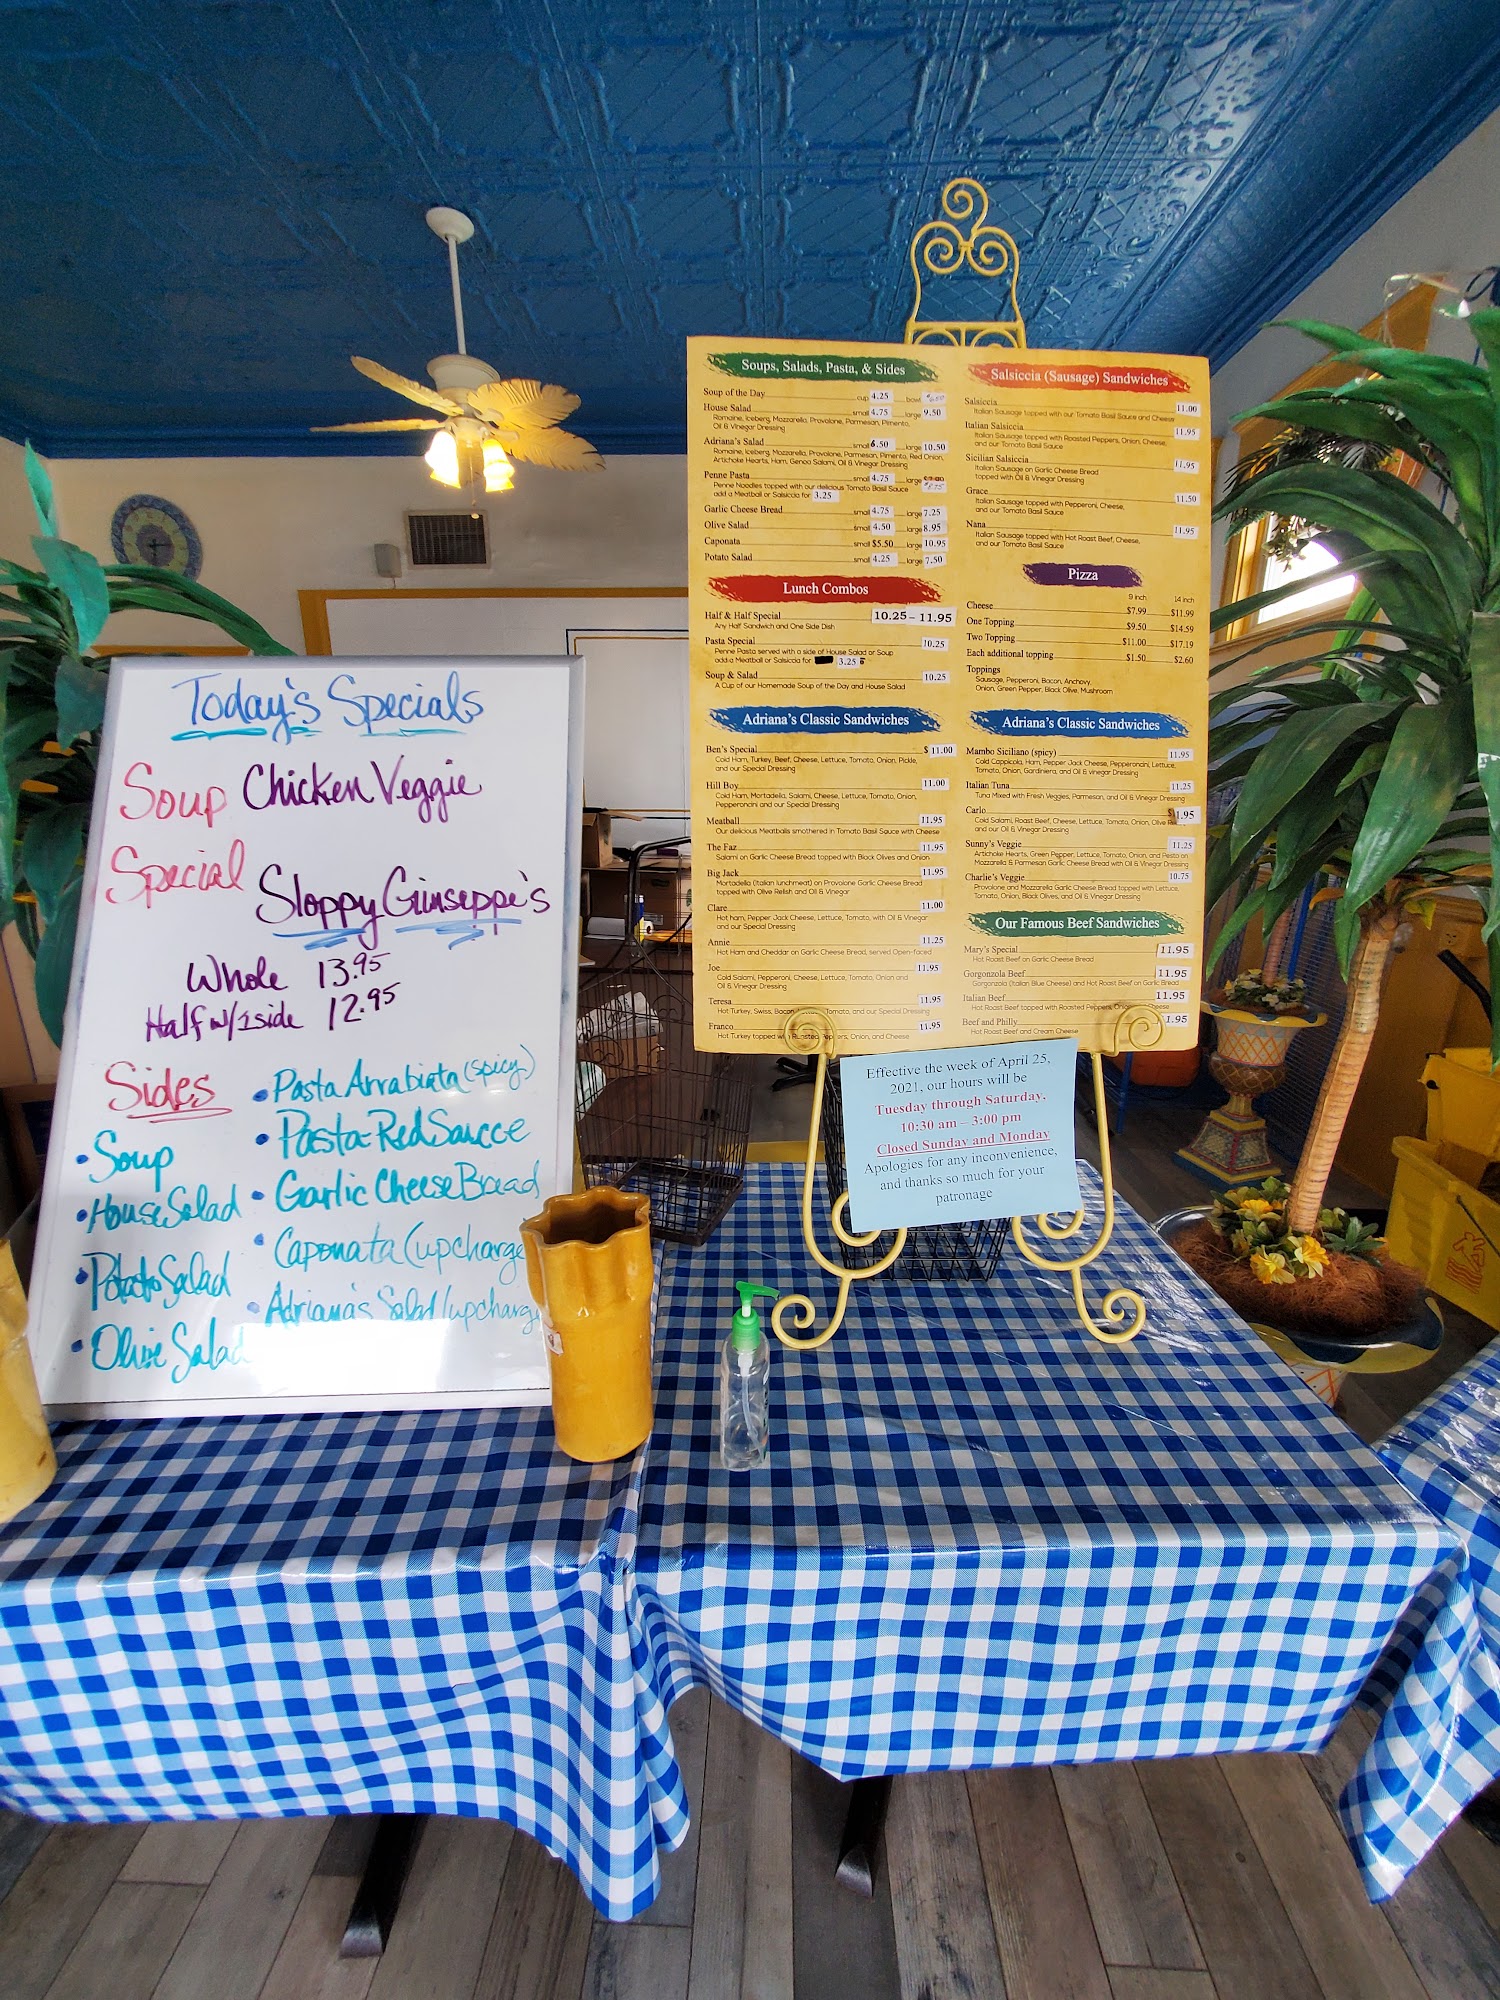 Today's Specials
Soup Chicken Veggie
Special Sloppy Giuseppe's
Whole 13.95
Half w/1side 12.95
Sides
• Soup
• House Salad
• Potato Salad
• Olive Salad
• Pasta Arrabiata (spicy)
• Pasta-Red Saucce
• Garlic Cheese Bread
• Caponata (upcharge
• Adriana's Salad (upcharge
Soups, Salads, Pasta, & Sides
Soup of the Day cup 4.25 bowl $6.50
House Salad small 4.75 large 9.50
Romaine, Iceberg, Mozzarella, Provolone, Parmesan, Pimento,
Oil & Vinegar Dressing
Adriana's Salad small 6.50 large 10.50
Romaine, Iceberg, Mozzarella, Provolone, Parmesan, Pimento, Red Onion,
Artichoke Hearts, Ham, Genoa Salami, Oil & Vinegar Dressing
Penne Pasta small 4.75 large $8.75
Penne Noodles topped with our delicious Tomato Basil Sauce
add a Meatball or Salsiccia for 3.25
Garlic Cheese Bread small 4.75 large 7.25
Olive Salad small 4.50 large 8.95
Caponata small $5.50 large 10.95
Potato Salad small 4.25 large 7.50
Lunch Combos
Half & Half Special 10.25 – 11.95
Any Half Sandwich and One Side Dish
Pasta Special 10.25
Penne Pasta served with a side of House Salad or Soup
add a Meatball or Salsiccia for 3.25
Soup & Salad 10.25
A Cup of our Homemade Soup of the Day and House Salad
Adriana's Classic Sandwiches
Ben's Special $ 11.00
Cold Ham, Turkey, Beef, Cheese, Lettuce, Tomato, Onion, Pickle,
and our Special Dressing
Hill Boy 11.00
Cold Ham, Mortadella, Salami, Cheese, Lettuce, Tomato, Onion,
Pepperoncini and our Special Dressing
Meatball 11.95
Our delicious Meatballs smothered in Tomato Basil Sauce with Cheese
The Faz 11.95
Salami on Garlic Cheese Bread topped with Black Olives and Onion
Big Jack 11.95
Mortadella (Italian lunchmeat) on Provolone Garlic Cheese Bread
topped with Olive Relish and Oil & Vinegar
Clare 11.00
Hot ham, Pepper Jack Cheese, Lettuce, Tomato, with Oil & Vinegar
and our Special Dressing
Annie 11.25
Hot Ham and Cheddar on Garlic Cheese Bread, served Open-faced
Joe 11.95
Cold Salami, Pepperoni, Cheese, Lettuce, Tomato, Onion and
Oil & Vinegar Dressing
Teresa 11.95
Hot Turkey, Swiss, Bacon, Tomato, and our Special Dressing
Franco 11.95
Hot Turkey topped with Roasted Peppers, Onion, and Cheese
Salsiccia (Sausage) Sandwiches
Salsiccia 11.00
Italian Sausage topped with our Tomato Basil Sauce and Cheese
Italian Salsiccia 11.95
Italian Sausage topped with Roasted Peppers, Onion, Cheese,
and our Tomato Basil Sauce
Sicilian Salsiccia 11.95
Italian Sausage on Garlic Cheese Bread
topped with Oil & Vinegar Dressing
Grace 11.50
Italian Sausage topped with Pepperoni, Cheese,
and our Tomato Basil Sauce
Nana 11.95
Italian Sausage topped with Hot Roast Beef, Cheese,
and our Tomato Basil Sauce
Pizza
9 inch 14 inch
Cheese $7.99 $11.99
One Topping $9.50 $14.59
Two Topping $11.00 $17.19
Each additional topping $1.50 $2.60
Toppings
Sausage, Pepperoni, Bacon, Anchovy,
Onion, Green Pepper, Black Olive, Mushroom
Adriana's Classic Sandwiches
Mambo Siciliano (spicy) 11.95
Cold Cappicola, Ham, Pepper Jack Cheese, Pepperoncini, Lettuce,
Tomato, Onion, Gardiniera, and Oil & Vinegar Dressing
Italian Tuna 11.25
Tuna Mixed with Fresh Veggies, Parmesan, and Oil & Vinegar Dressing
Carlo $11.95
Cold Salami, Roast Beef, Cheese, Lettuce, Tomato, Onion, Olive
and our Oil & Vinegar Dressing
Sunny's Veggie 11.25
Artichoke Hearts, Green Pepper, Lettuce, Tomato, Onion, and Pesto on
Mozzarella & Parmesan Garlic Cheese Bread with Oil & Vinegar Dressing
Charlie's Veggie 10.75
Provolone and Mozzarella Garlic Cheese Bread topped with Lettuce,
Tomato, Onion, Black Olives, and Oil & Vinegar Dressing
Our Famous Beef Sandwiches
Mary's Special 11.95
Hot Roast Beef on Garlic Cheese Bread
Gorgonzola Beef 11.95
Gorgonzola (Italian Blue Cheese) and Hot Roast Beef on Garlic Bread
Italian Beef 11.95
Hot Roast Beef topped with Roasted Peppers, Onion,
Beef and Philly 1.95
Hot Roast Beef and Cream Cheese
Effective the week of April 25,
2021, our hours will be
Tuesday through Saturday,
10:30 am – 3:00 pm
Closed Sunday and Monday
Apologies for any inconvenience,
and thanks so much for your
patronage